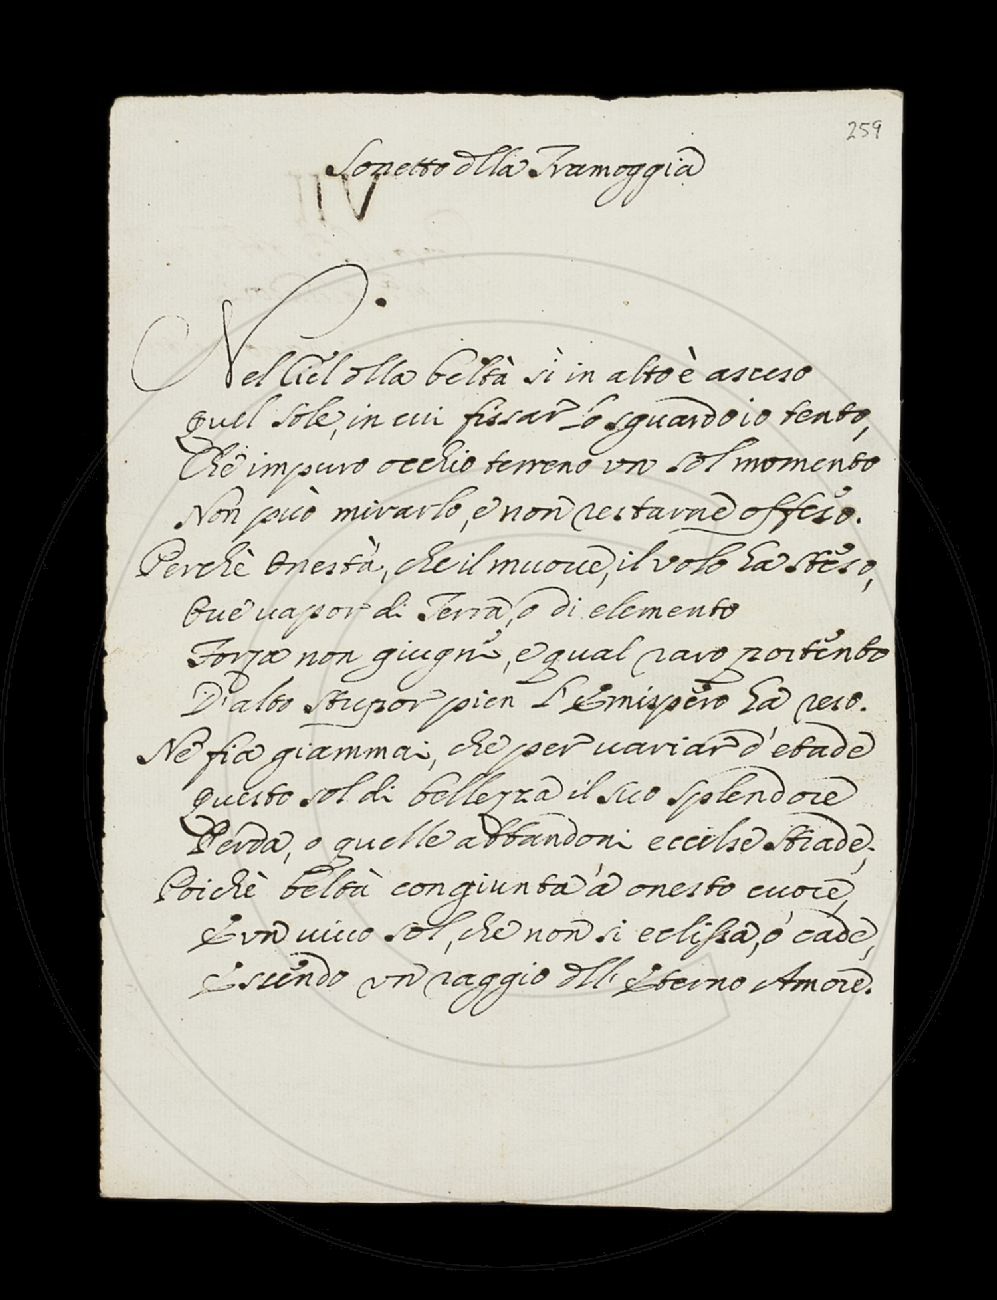 259
Sonetto dlla Tramoggia
VII
Nel Ciel dlla beltà sì in alto è asceso
Quel sole, in cui fissar lo sguardo io tento,
Che impuro occhio terreno vn sol momento
Non può mirarlo, e non restarne offeso.
Perchè Onestà, che il muove, il volo ha steso,
Oue uapor di Terra, o di elemento
Forza non giugne, e qual raro portento
D'alto stupor pien l'Emispero ha reso.
Nè fia giammai, che per uariar d'etade
Questo sol di bellezza il suo splendore
Perda, o quelle abbandoni eccelse strade;
Poichè beltà congiunta à onesto cuore,
È vn uiuo sol, che non si eclissa, o cade,
Essendo vn raggio dll'Eterno Amore.